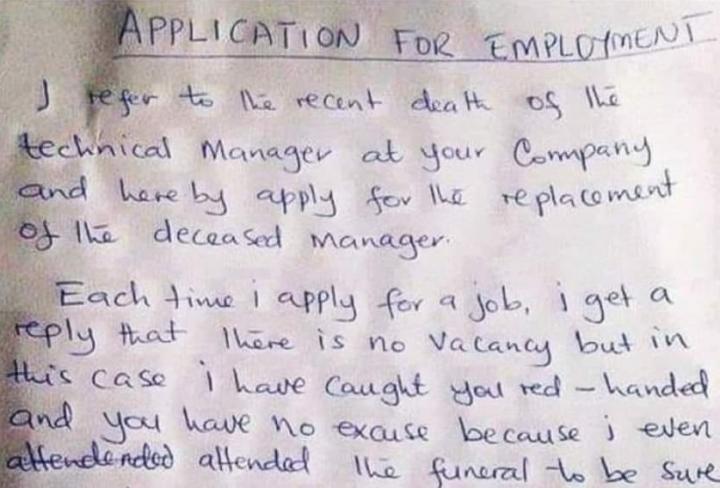 APPLICATION FOR EMPLOYMENT
I refer to the recent death of the
technical Manager at your Company
and here by apply for the replacement
of the deceased manager.
Each time i apply for a job, i get a
reply that there is no vacancy but in
this case i have caught you red-handed
and you have no excuse because i even
attendended attended the funeral to be sure